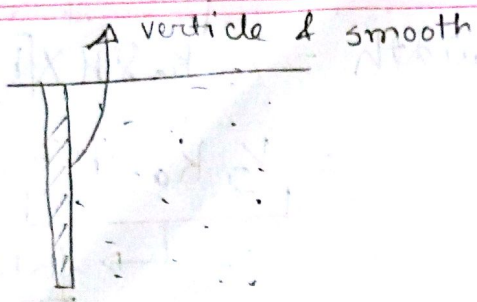 verticle & smooth